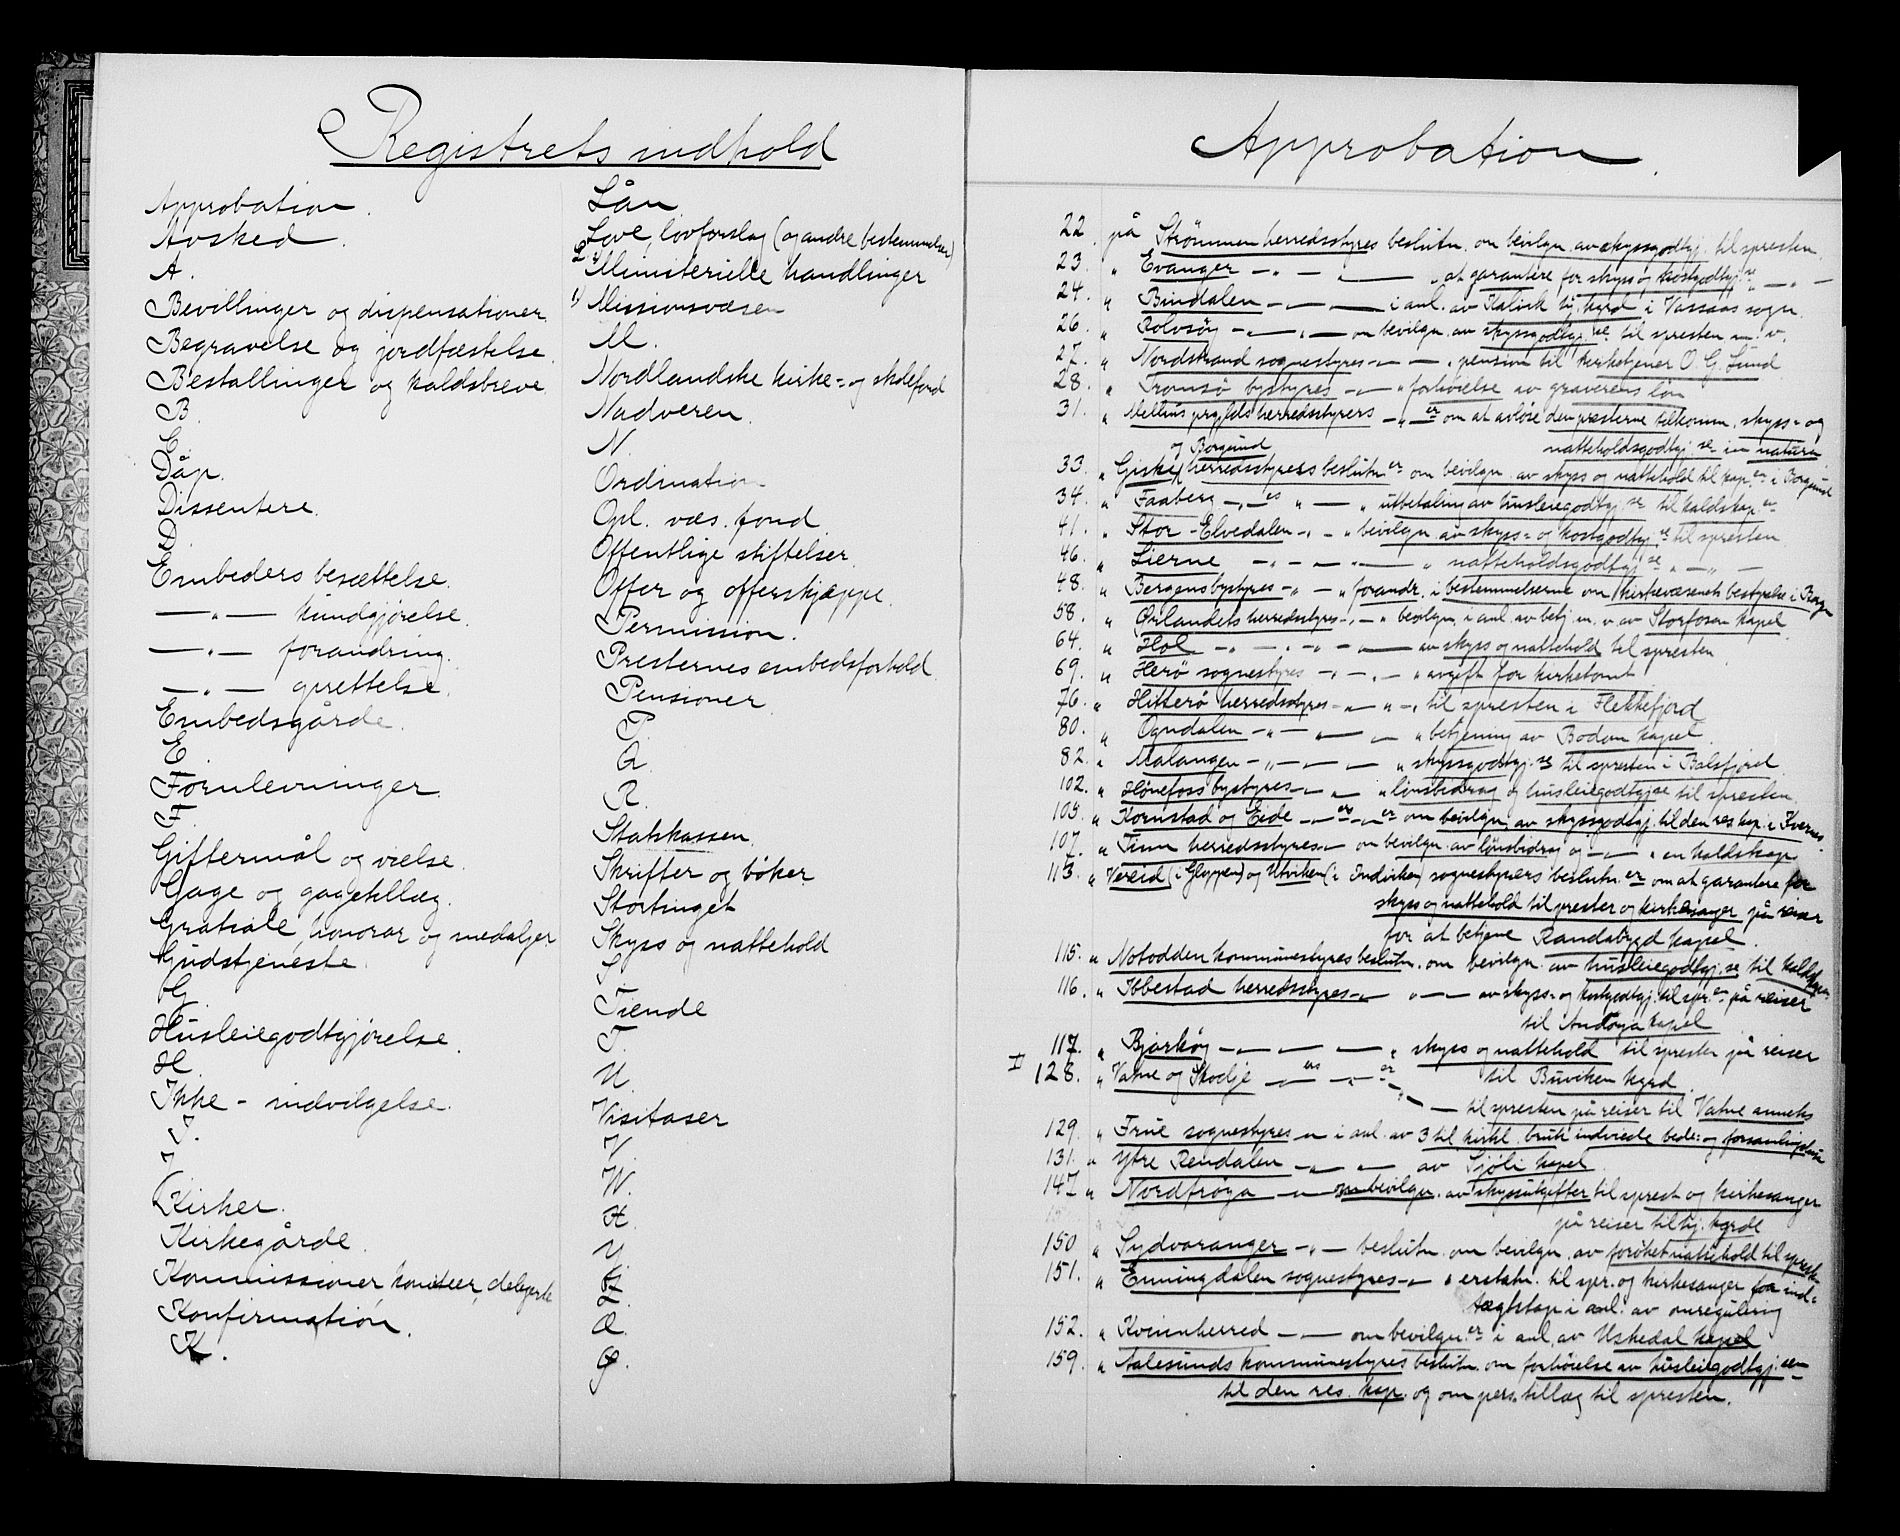 Registrets indhold
Approbation.
Avsked.
A.
Bevillinger og dispensationer
Begravelse og jordfæstelse.
Bestallinger og kaldsbreve.
B.
C.
Dåp.
Dissentere.
D.
Embeders besættelse.
—„— kundgjørelse.
—„— forandring.
—„— oprettelse.
Embedsgårde.
E
Fornlevninger.
F.
Giftermål og vielse.
Gage og gagetillæg.
Gratiale, honorar og medaljer
Gudstjeneste.
G.
Husleiegodtgjørelse.
H.
Ikke-indvilgelse.
I.
J.
Kirker.
Kirkegårde.
Kommissioner, komiteer, delegerte
Konfirmation.
K.
Lån
Love, lovforslag (og andre bestemmelser)
L.
2) Ministerielle handlinger
1) Missionsvæsen
M.
Nordlandske kirke- og skolefond
Nadveren.
N.
Ordination
Opl. væs. fond
Offentlige stiftelser.
Offer og offerskjæppe.
Permission.
Presternes embedsforhold
Pensioner
P.
Q.
R.
Statskassen.
Skrifter og bøker
Stortinget
Skyss og nattehold
S.
Tiende
T.
U.
Visitaser
V.
W.
X.
Y.
Z.
Æ.
Ø.
Approbation.
22. på Strømmen herredsstyres beslutn. om bevilgn. av skyssgodtgj. til spresten.
23. „ Evanger —„— „ at garantere for skyss og kostgodtgj.se —„—
24. „ Bindalen —„— i anl. av Kalvik hj. kgrd i Vassaas sogn.
26. „ Rolvsøy —„— om bevilgn. av skyssgodtgj.se til spresten m. v.
27. „ Nordstrand sognestyres —„— „ pension til kirketjener O. G. Lund
28. „ Tromsø bystyres —„— „ forhøielse av graverens løn
31. „ herredsstyrers —„—er om at avløse den præsterne tilkomm. skyss- og
nattehholdsgodtgj.se in natura
33. „ Giske og Borgund herredsstyrers beslutn.er om bevilgn. av skyss og nattehold til kap.en i Borgund
34. „ Faaberg —„—es „ — „ utbetaling av husleiegodtgj.se til kaldskap.en
41. „ Stor-Elvedalen —„— „ bevilgn. av skyss- og kostgodtgj.se til spresten
46. „ Lierne —„— „ nattehholdsgodtgj.se „—„—
48. „ Bergens bystyres —„— „ forandr. i bestemmelserne om kirkevæsenets bestyrelse i Bergen
58. „ Ørlandets herredsstyres —„— „ bevilgn. i anl. av betj. m. v. av Storfosen kapel
64. „ Hol —„— av skyss og nattehold til spresten.
69. „ Herø sognestyres —„— „ avgift for kirketomt
76. „ Hitterø herredsstyres —„— til spresten i Flekkefjord
80. „ Ogndalen —„— „ betjening av Bodom kapel
82. „ Malangen —„— „ skyssgodtgj.se til spresten i Balsfjord
102. „ Hønefoss bystyres —„— „ lønsbidrag og husleiegodtgj.se til spresten
105. „ Kornstad og Eide —„—es —„—er om bevilgn. av skyssgodtgj. til den res. kap. i Kvernes.
107. „ Tinn herredsstyres —„— om bevilgn. av lønsbidrag og —„— „ en kaldskap.
113. „ Vereid (i Gloppen) og Utviken (i Indviken) sognestyrers beslutn.er om at garantere for
skyss og nattehold til prester og kirkesanger på reiser
for at betjene Randabygd kapel.
115. „ Notodden kommunestyres beslutn. om bevilgn. av husleiegodtgj.se til kaldskap.
116. „ Ibbestad herredsstyres —„— „ — av skyss- og kostgodtgj. til spr.en på reiser
til Andørja kapel
117. „ Bjarkøy —„— „ skyss og nattehold til spresten på reiser
til Buviken kgrd.
II 128. „ Vatne og Skodje —„—es —„—er
„ — til spresten på reiser til Vatne anneks
129. „ Frue sognestyres —„— i anl. av 3 til kirkl. bruk indviede bede- og forsamlingshuse
131. „ Ytre Rendalen —„— av Sjøli kapel.
147. „ Nordfrøya —„— om bevilgn. av skyssutgifter til sprest og kirkesanger
på reiser til hj. kgrde
150 „ Sydvaranger —„— beslutn. om bevilgn. av forøket nattehold til sprest.
151. „ Enningdalen sognestyres —„— „ erstatn. til spr. og kirkesanger for ind-
tægtstap i anl. av omregulering
152. „ Kvinnherred —„— om bevilgn.er i anl. av Uskedal kapel
159. „ Aalesunds kommunestyres beslutn. om forhøielse av husleiegodtgj.sen
til den res. kap. og om pers. tillæg til spresten.